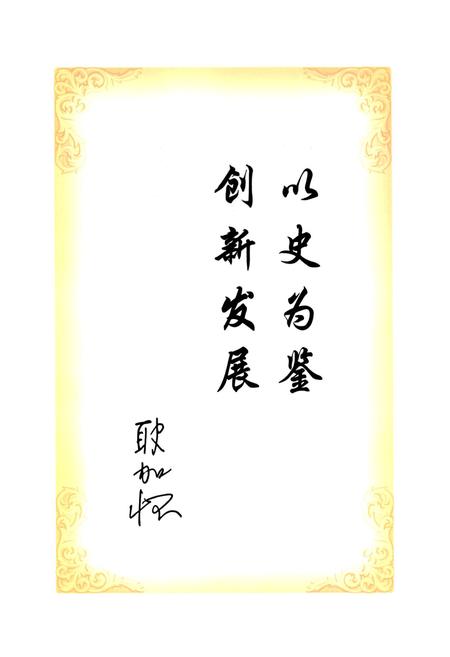 以史为鉴
创新发展
耿加怀